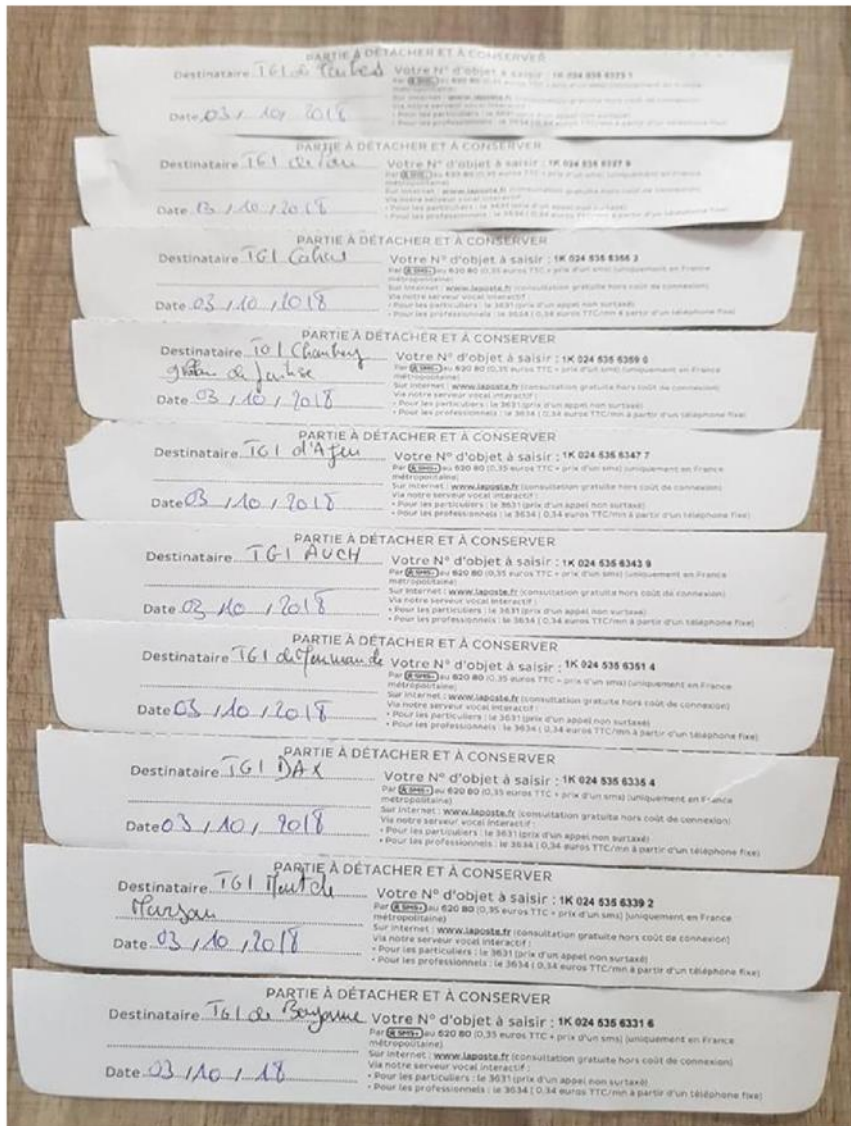 PARTIE À DÉTACHER ET À CONSERVER
Destinataire TGI de Tarbes Votre N° d'objet à saisir : 1K 024 535
Par SMS+ au 620 80 (0,35 euros TTC + prix d'un sms) (uniquement en France
métropolitaine)
Sur Internet : www.laposte.fr (consultation gratuite hors coût de connexion)
Via notre serveur vocal interactif
• Pour les particuliers : le 3631 (prix d'un appel non surtaxé)
Date 03 / 10 / 2018 • Pour les professionnels : le 3634 ( 0,34 euros TTC/mn à partir d'un téléphone fixe)
PARTIE À DÉTACHER ET À CONSERVER
Destinataire TGI de Pau Votre N° d'objet à saisir : 1K 024 535
Par SMS+ au 620 80 (0,35 euros TTC + prix d'un sms) (uniquement en France
métropolitaine)
Sur Internet : www.laposte.fr (consultation gratuite hors coût de connexion)
Via notre serveur vocal interactif :
• Pour les particuliers : le 3631 (prix d'un appel non surtaxé)
Date 03 / 10 / 2018 • Pour les professionnels : le 3634 ( 0,34 euros TTC/mn à partir d'un téléphone fixe)
PARTIE À DÉTACHER ET À CONSERVER
Destinataire TGI Cahors Votre N° d'objet à saisir : 1K 024 535 6355 3
Par SMS+ au 620 80 (0,35 euros TTC + prix d'un sms) (uniquement en France
métropolitaine)
Sur Internet : www.laposte.fr (consultation gratuite hors coût de connexion)
Via notre serveur vocal interactif :
• Pour les particuliers : le 3631 (prix d'un appel non surtaxé)
Date 03 / 10 / 2018 • Pour les professionnels : le 3634 ( 0,34 euros TTC/mn à partir d'un téléphone fixe)
PARTIE À DÉTACHER ET À CONSERVER
Destinataire TGI Chambery Votre N° d'objet à saisir : 1K 024 535 6359 0
Par SMS+ au 620 80 (0,35 euros TTC + prix d'un sms) (uniquement en France
de Justice métropolitaine)
Sur Internet : www.laposte.fr (consultation gratuite hors coût de connexion)
Via notre serveur vocal interactif :
• Pour les particuliers : le 3631 (prix d'un appel non surtaxé)
Date 03 / 10 / 2018 • Pour les professionnels : le 3634 ( 0,34 euros TTC/mn à partir d'un téléphone fixe)
PARTIE À DÉTACHER ET À CONSERVER
Destinataire TGI d'Agen Votre N° d'objet à saisir : 1K 024 535 6347 7
Par SMS+ au 620 80 (0,35 euros TTC + prix d'un sms) (uniquement en France
métropolitaine)
Sur Internet : www.laposte.fr (consultation gratuite hors coût de connexion)
Via notre serveur vocal interactif :
• Pour les particuliers : le 3631 (prix d'un appel non surtaxé)
Date 03 / 10 / 2018 • Pour les professionnels : le 3634 ( 0,34 euros TTC/mn à partir d'un téléphone fixe)
PARTIE À DÉTACHER ET À CONSERVER
Destinataire TGI AUCH Votre N° d'objet à saisir : 1K 024 535 6343 9
Par SMS+ au 620 80 (0,35 euros TTC + prix d'un sms) (uniquement en France
métropolitaine)
Sur Internet : www.laposte.fr (consultation gratuite hors coût de connexion)
Via notre serveur vocal interactif :
• Pour les particuliers : le 3631 (prix d'un appel non surtaxé)
Date 03 / 10 / 2018 • Pour les professionnels : le 3634 ( 0,34 euros TTC/mn à partir d'un téléphone fixe)
PARTIE À DÉTACHER ET À CONSERVER
Destinataire TGI de Marmande Votre N° d'objet à saisir : 1K 024 535 6351 4
Par SMS+ au 620 80 (0,35 euros TTC + prix d'un sms) (uniquement en France
métropolitaine)
Sur Internet : www.laposte.fr (consultation gratuite hors coût de connexion)
Via notre serveur vocal interactif :
• Pour les particuliers : le 3631 (prix d'un appel non surtaxé)
Date 03 / 10 / 2018 • Pour les professionnels : le 3634 ( 0,34 euros TTC/mn à partir d'un téléphone fixe)
PARTIE À DÉTACHER ET À CONSERVER
Destinataire TGI DAX Votre N° d'objet à saisir : 1K 024 535 6335 4
Par SMS+ au 620 80 (0,35 euros TTC + prix d'un sms) (uniquement en France
métropolitaine)
Sur Internet : www.laposte.fr (consultation gratuite hors coût de connexion)
Via notre serveur vocal interactif :
• Pour les particuliers : le 3631 (prix d'un appel non surtaxé)
Date 03 / 10 / 2018 • Pour les professionnels : le 3634 ( 0,34 euros TTC/mn à partir d'un téléphone fixe)
PARTIE À DÉTACHER ET À CONSERVER
Destinataire TGI Mont de Votre N° d'objet à saisir : 1K 024 535 6339 2
Marsan Par SMS+ au 620 80 (0,35 euros TTC + prix d'un sms) (uniquement en France
métropolitaine)
Sur Internet : www.laposte.fr (consultation gratuite hors coût de connexion)
Via notre serveur vocal interactif :
• Pour les particuliers : le 3631 (prix d'un appel non surtaxé)
Date 03 / 10 / 2018 • Pour les professionnels : le 3634 ( 0,34 euros TTC/mn à partir d'un téléphone fixe)
PARTIE À DÉTACHER ET À CONSERVER
Destinataire TGI de Bayonne Votre N° d'objet à saisir : 1K 024 535 6331 6
Par SMS+ au 620 80 (0,35 euros TTC + prix d'un sms) (uniquement en France
métropolitaine)
Sur Internet : www.laposte.fr (consultation gratuite hors coût de connexion)
Via notre serveur vocal interactif :
• Pour les particuliers : le 3631 (prix d'un appel non surtaxé)
Date 03 / 10 / 18 • Pour les professionnels : le 3634 ( 0,34 euros TTC/mn à partir d'un téléphone fixe)